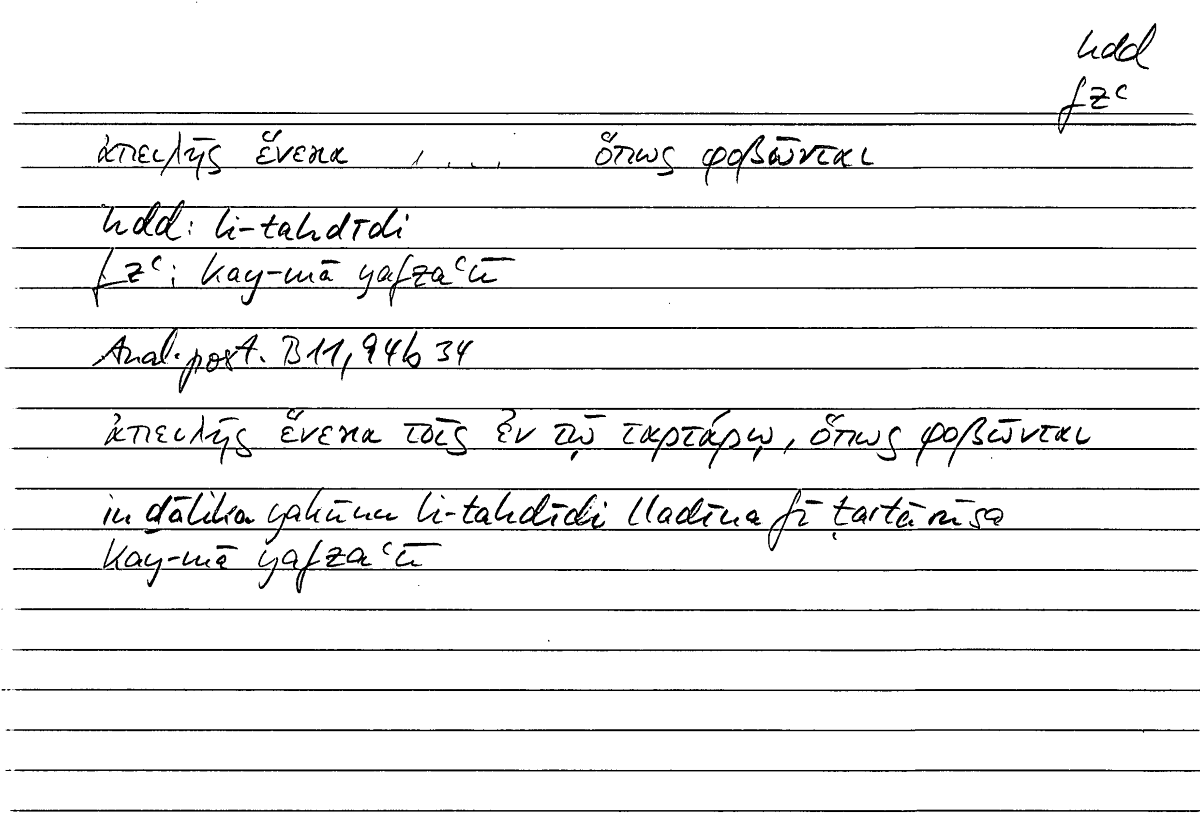 hdd
fzʿ
ἀπειλῆς ἕνεκα , . . . ὅπως φοβῶνται
hdd: li-tahdīdi
fzʿ: kay-mā yafzaʿū
Anal. post. B 11, 94b 34
ἀπειλῆς ἕνεκα τοῖς ἐν τῷ ταρτάρῳ, ὅπως φοβῶνται
in ḏālika yakūnu li-tahdīdi lladīna fī ṭarṭārūsa
kay-mā yafzaʿū